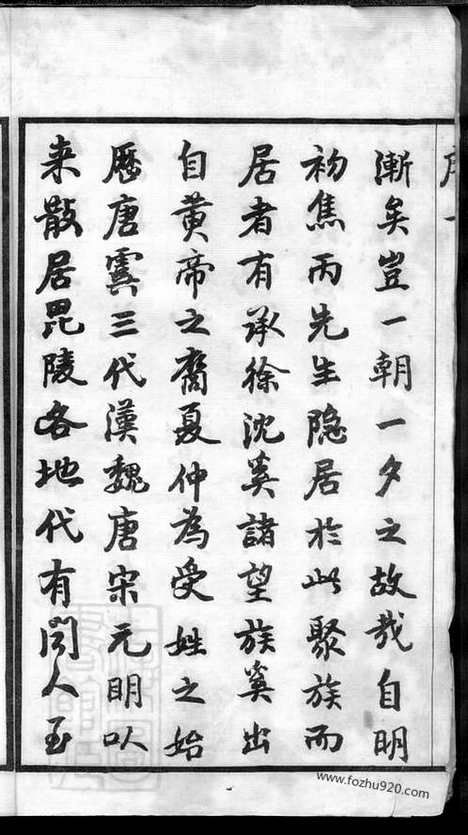 序一
漸矣豈一朝一夕之故哉自明
初焦丙先生隐居於此聚族而
居者有承徐沈奚諸望族奚出
自黄帝之裔夏仲為受姓之始
歷唐虞三代漢魏唐宋元明以
来散居毘陵各地代有聞人至
www.fozhu920.com